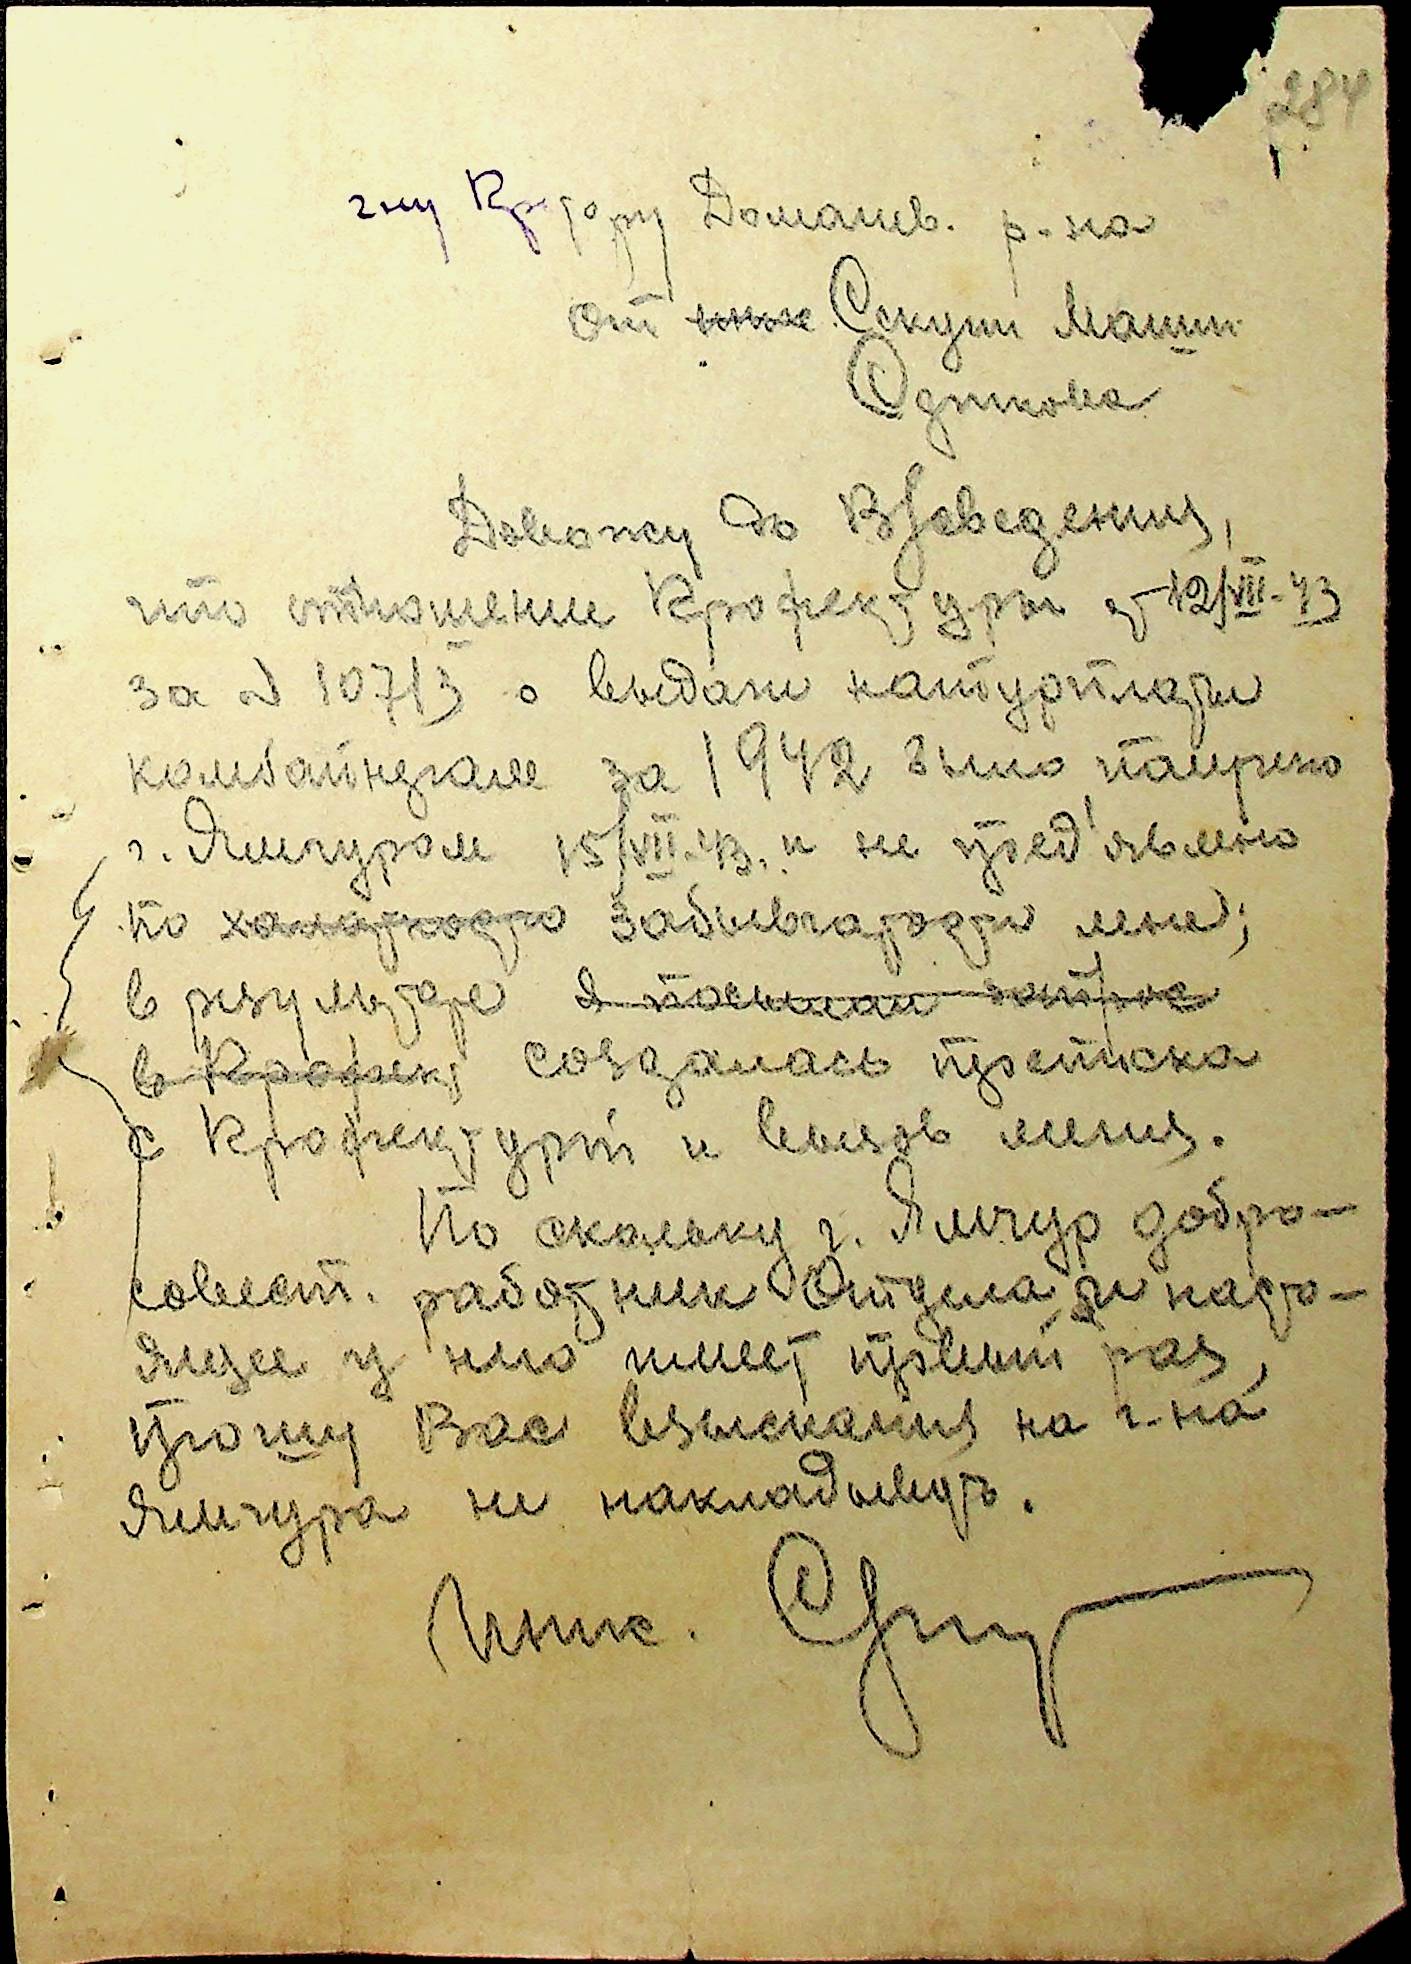 284
г-ну Претору Доманев. р-на
от инж. Секции Машин
Садикова
Довожу до В/сведения,
что отношение Префектуры от 12/VIII-43
за № 107/3 о выдаче натурплаты
комбайнерам за 1942 было получено
г. Ямчуром 15/VIII-43. и не пред'явлено
по халатности забывчатости мне;
в результате я посылал запрос
в Префект создалась преписка
с Префектурой и вызов меня.
По скольку г. Ямчур добро-
совест. работник Отдела и насто-
ящее у него имеет првый раз,
прошу Вас взыскания на г-на
Ямчура не накладывать.
Инж.